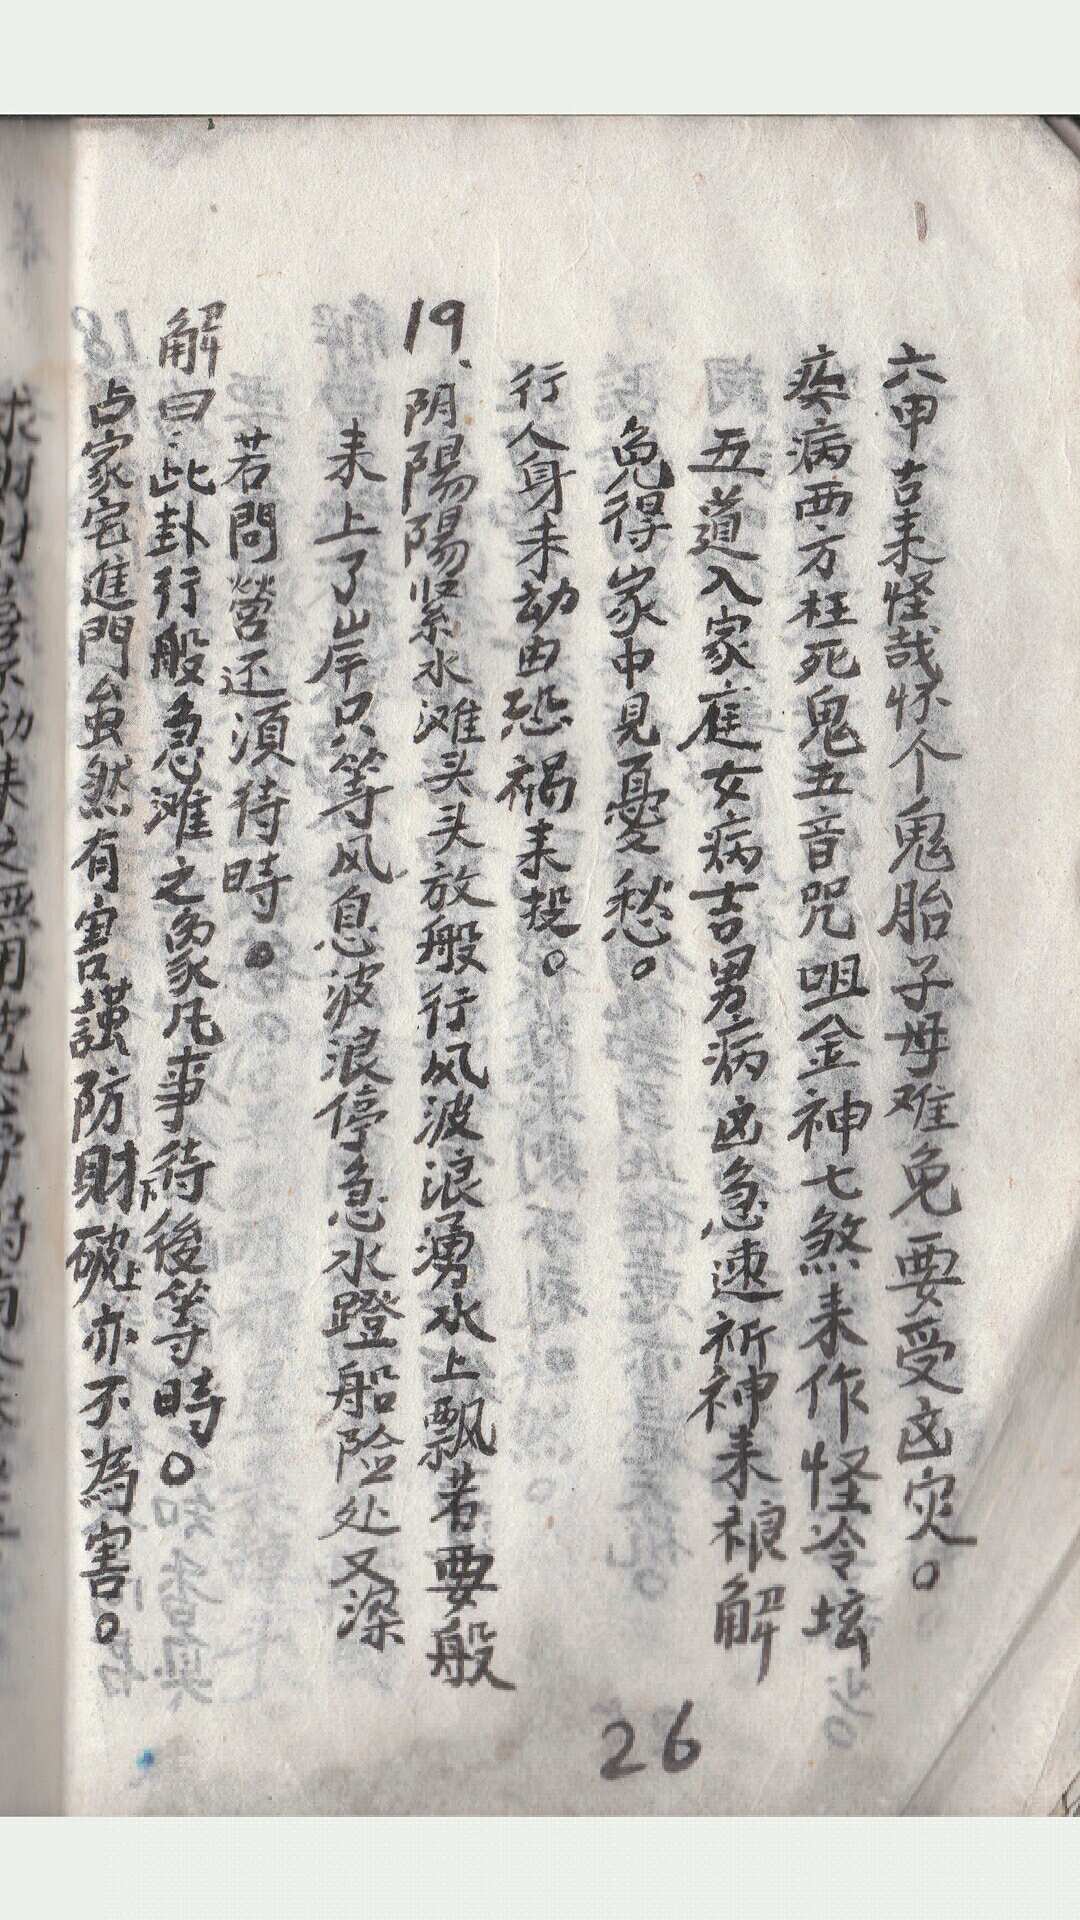 六甲吉耒怪哉怀个鬼胎子母难免要受凶灾。
疾病西方枉死鬼五音咒咀金神七煞耒作怪冷坛
五道入家庭女病吉男病凶急速祈神耒禳解
免得家中見憂愁。
行人身未动由恐禍耒投。
19.阴陽陽紧水滩头头放般行风波浪湧水上飘若要般
耒上了岸只等风息波浪停急水蹬船险处又深
若問營还須待時。
解曰:此卦行般急滩之象凡事待後等時。
占家宅進門虽然有害謹防財破亦不為害。
下 上
26